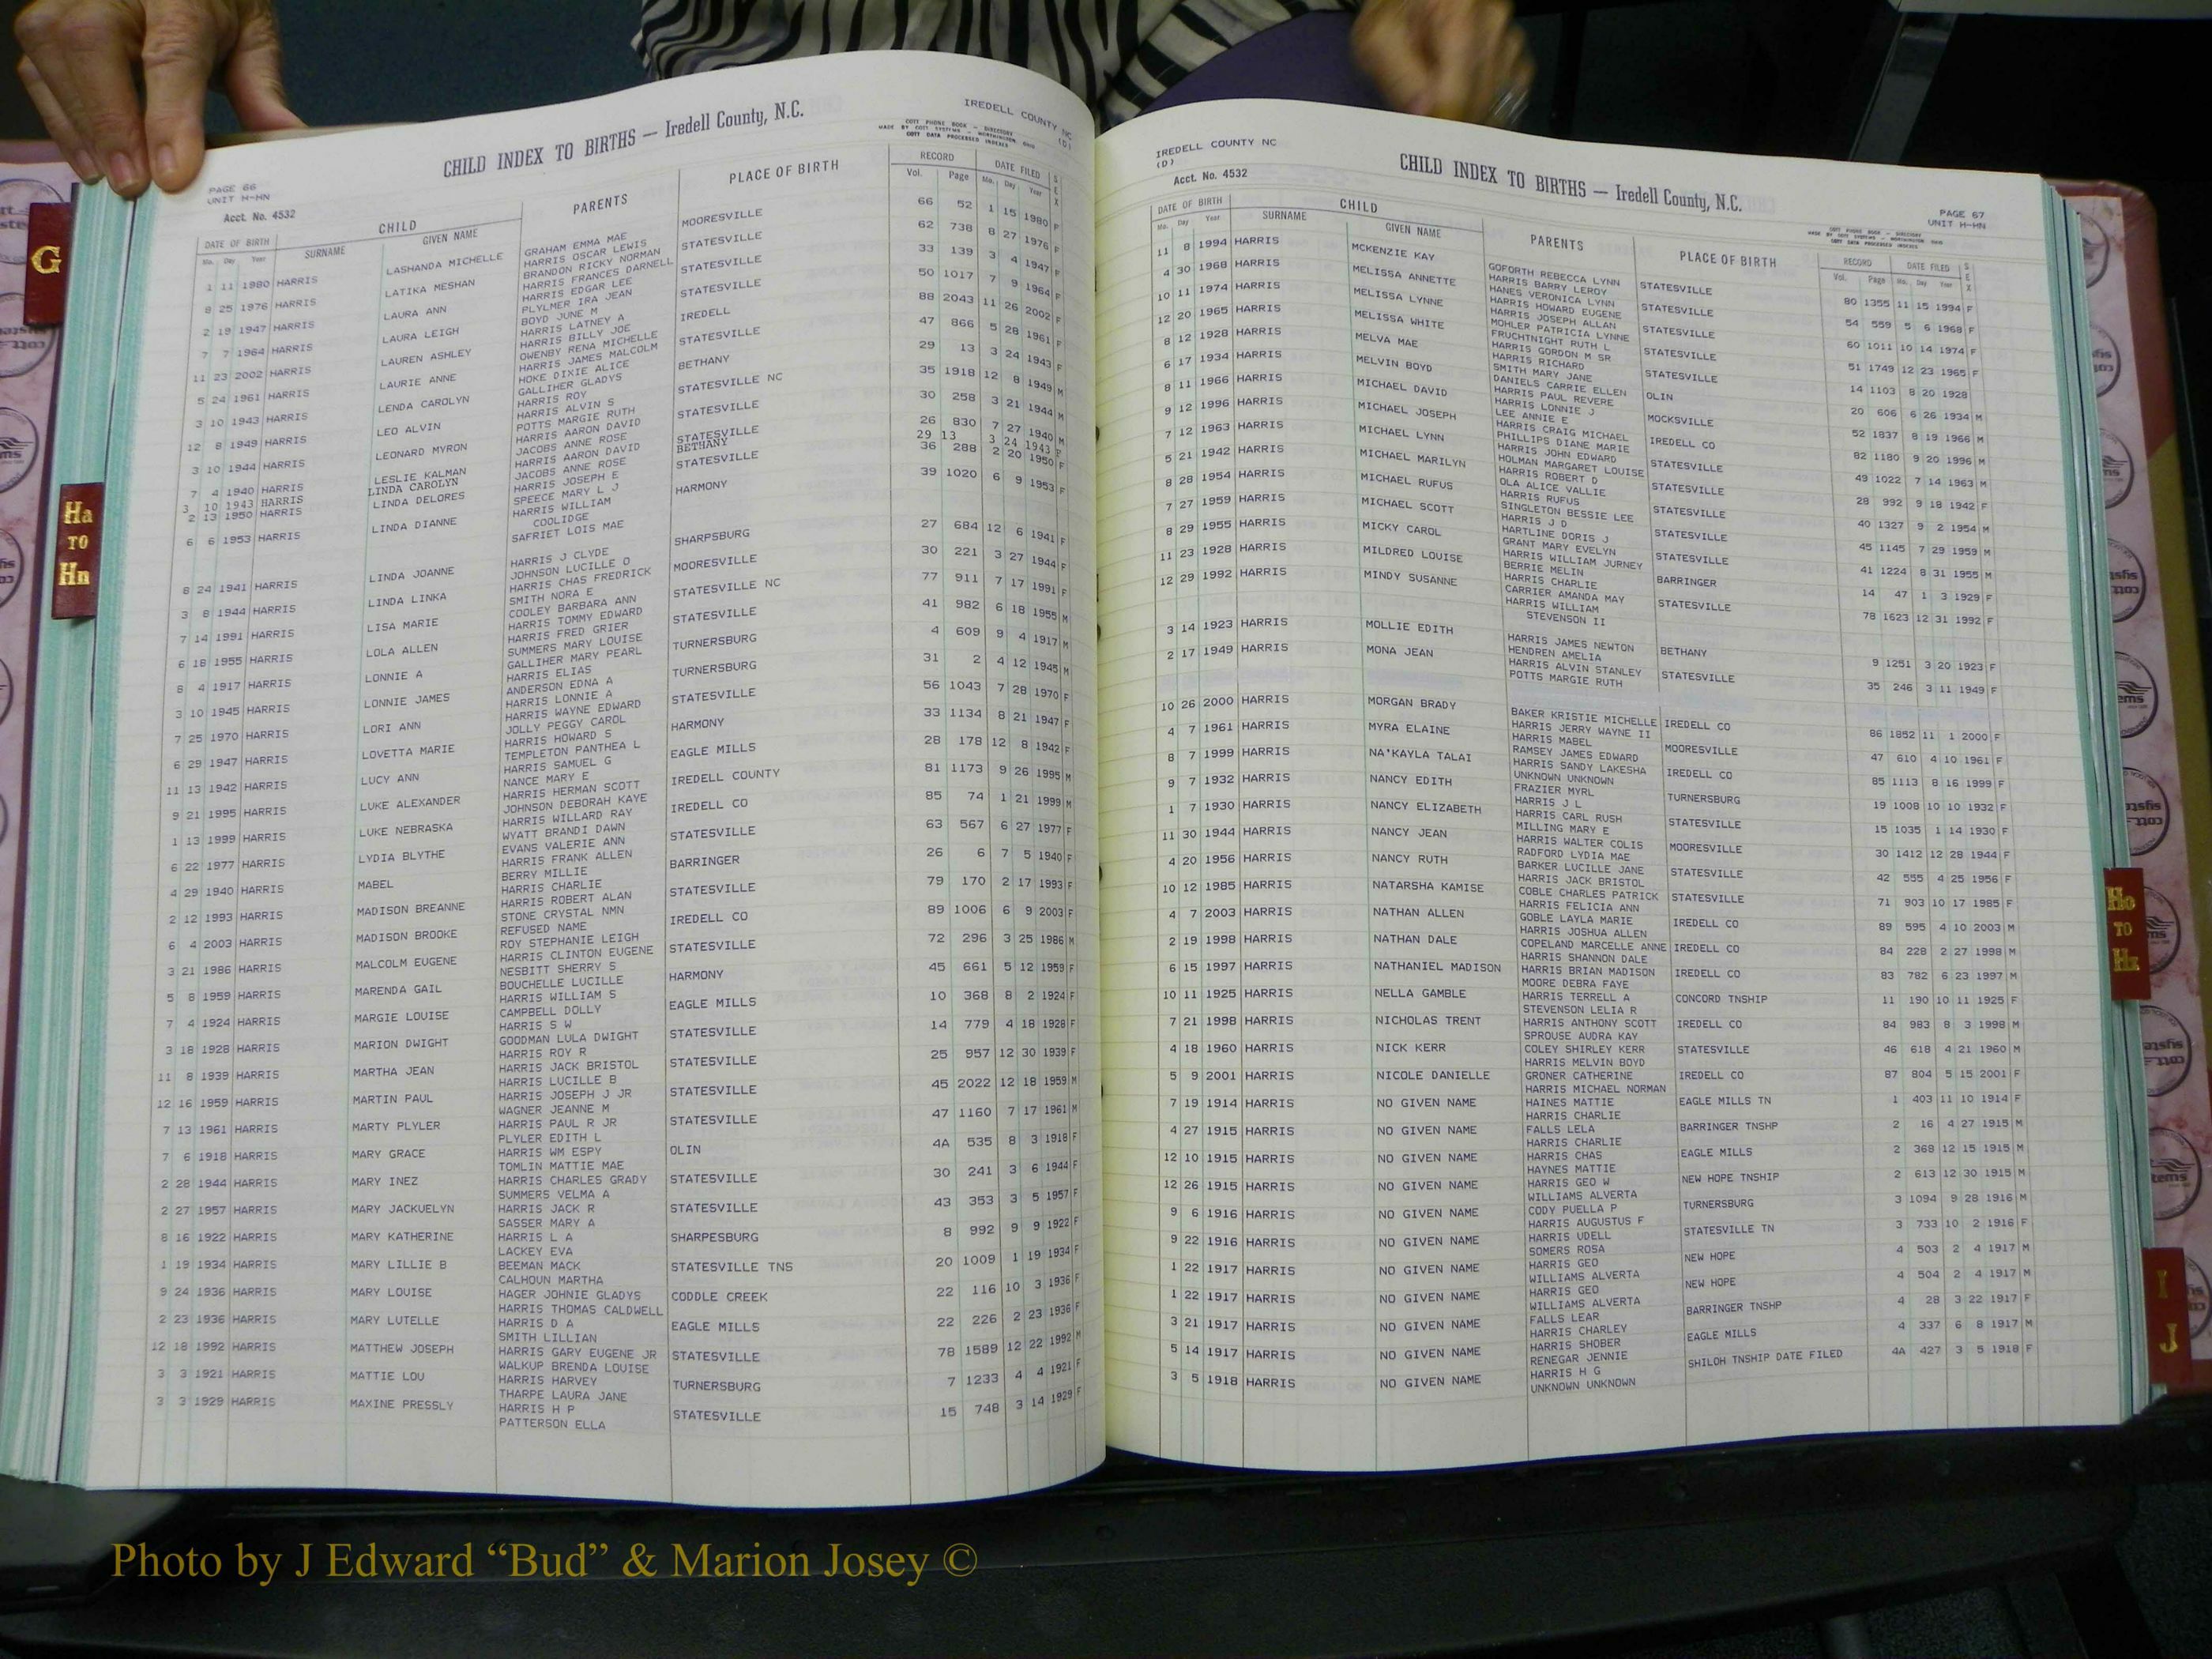 IREDELL COUNTY NC
(D)
CHILD INDEX TO BIRTHS — Iredell County, N.C.
COTT PHONE BOOK - DIRECTORY
MADE BY COTT SYSTEMS - WORTHINGTON, OHIO
COTT DATA PROCESSED INDEXES
PAGE 66
UNIT H-HN
Acct. No. 4532
DATE OF BIRTH CHILD PARENTS PLACE OF BIRTH RECORD DATE FILED SEX
Mo. Day Year SURNAME GIVEN NAME Vol. Page Mo. Day Year
1 11 1980 HARRIS LASHANDA MICHELLE GRAHAM EMMA MAE MOORESVILLE 66 52 1 15 1980 F
HARRIS OSCAR LEWIS
8 25 1976 HARRIS LATIKA MESHAN BRANDON RICKY NORMAN STATESVILLE 62 738 8 27 1976 F
HARRIS FRANCES DARNELL
2 19 1947 HARRIS LAURA ANN HARRIS EDGAR LEE STATESVILLE 33 139 3 4 1947 F
PLYLMER IRA JEAN
7 7 1964 HARRIS LAURA LEIGH BOYD JUNE M STATESVILLE 50 1017 7 9 1964 F
HARRIS LATNEY A
11 23 2002 HARRIS LAUREN ASHLEY HARRIS BILLY JOE IREDELL 88 2043 11 26 2002 F
OWENBY RENA MICHELLE
5 24 1961 HARRIS LAURIE ANNE HARRIS JAMES MALCOLM STATESVILLE 47 866 5 28 1961 F
HOKE DIXIE ALICE
3 10 1943 HARRIS LENDA CAROLYN GALLIHER GLADYS BETHANY 29 13 3 24 1943 F
HARRIS ROY
12 8 1949 HARRIS LEO ALVIN HARRIS ALVIN S STATESVILLE NC 35 1918 12 8 1949 M
POTTS MARGIE RUTH
3 10 1944 HARRIS LEONARD MYRON HARRIS AARON DAVID STATESVILLE 30 258 3 21 1944 M
JACOBS ANNE ROSE
7 4 1940 HARRIS LESLIE KALMAN HARRIS AARON DAVID STATESVILLE 26 830 7 27 1940 M
JACOBS ANNE ROSE
3 10 1943 HARRIS LINDA CAROLYN BETHANY 29 13 3 24 1943 F
2 13 1950 HARRIS LINDA DELORES HARRIS JOSEPH E STATESVILLE 36 288 2 20 1950 F
SPEECE MARY L J
6 6 1953 HARRIS LINDA DIANNE HARRIS WILLIAM HARMONY 39 1020 6 9 1953 F
COOLIDGE
SAFRIET LOIS MAE
8 24 1941 HARRIS LINDA JOANNE HARRIS J CLYDE SHARPSBURG 27 684 12 6 1941 F
JOHNSON LUCILLE O
3 8 1944 HARRIS LINDA LINKA HARRIS CHAS FREDRICK MOORESVILLE 30 221 3 27 1944 F
SMITH NORA E
7 14 1991 HARRIS LISA MARIE COOLEY BARBARA ANN STATESVILLE NC 77 911 7 17 1991 F
HARRIS TOMMY EDWARD
6 18 1955 HARRIS LOLA ALLEN HARRIS FRED GRIER STATESVILLE 41 982 6 18 1955 M
SUMMERS MARY LOUISE
8 4 1917 HARRIS LONNIE A GALLIHER MARY PEARL TURNERSBURG 4 609 9 4 1917 M
HARRIS ELIAS
3 10 1945 HARRIS LONNIE JAMES ANDERSON EDNA A TURNERSBURG 31 2 4 12 1945 M
HARRIS LONNIE A
7 25 1970 HARRIS LORI ANN HARRIS WAYNE EDWARD STATESVILLE 56 1043 7 28 1970 F
JOLLY PEGGY CAROL
6 29 1947 HARRIS LOVETTA MARIE HARRIS HOWARD S HARMONY 33 1134 8 21 1947 F
TEMPLETON PANTHEA L
11 13 1942 HARRIS LUCY ANN HARRIS SAMUEL G EAGLE MILLS 28 178 12 8 1942 F
NANCE MARY E
9 21 1995 HARRIS LUKE ALEXANDER HARRIS HERMAN SCOTT IREDELL COUNTY 81 1173 9 26 1995 M
JOHNSON DEBORAH KAYE
1 13 1999 HARRIS LUKE NEBRASKA HARRIS WILLARD RAY IREDELL CO 85 74 1 21 1999 M
WYATT BRANDI DAWN
6 22 1977 HARRIS LYDIA BLYTHE EVANS VALERIE ANN STATESVILLE 63 567 6 27 1977 F
HARRIS FRANK ALLEN
4 29 1940 HARRIS MABEL BERRY MILLIE BARRINGER 26 6 7 5 1940 F
HARRIS CHARLIE
2 12 1993 HARRIS MADISON BREANNE HARRIS ROBERT ALAN STATESVILLE 79 170 2 17 1993 F
STONE CRYSTAL NMN
6 4 2003 HARRIS MADISON BROOKE REFUSED NAME IREDELL CO 89 1006 6 9 2003 F
ROY STEPHANIE LEIGH
3 21 1986 HARRIS MALCOLM EUGENE HARRIS CLINTON EUGENE STATESVILLE 72 296 3 25 1986 M
NESBITT SHERRY S
5 8 1959 HARRIS MARENDA GAIL BOUCHELLE LUCILLE HARMONY 45 661 5 12 1959 F
HARRIS WILLIAM S
7 4 1924 HARRIS MARGIE LOUISE CAMPBELL DOLLY EAGLE MILLS 10 368 8 2 1924 F
HARRIS S W
3 18 1928 HARRIS MARION DWIGHT GOODMAN LULA DWIGHT STATESVILLE 14 779 4 18 1928 F
HARRIS ROY R
11 8 1939 HARRIS MARTHA JEAN HARRIS JACK BRISTOL STATESVILLE 25 957 12 30 1939 F
HARRIS LUCILLE B
12 16 1959 HARRIS MARTIN PAUL HARRIS JOSEPH J JR STATESVILLE 45 2022 12 18 1959 M
WAGNER JEANNE M
7 13 1961 HARRIS MARTY PLYLER HARRIS PAUL R JR STATESVILLE 47 1160 7 17 1961 M
PLYLER EDITH L
7 6 1918 HARRIS MARY GRACE HARRIS WM ESPY OLIN 4A 535 8 3 1918 F
TOMLIN MATTIE MAE
2 28 1944 HARRIS MARY INEZ HARRIS CHARLES GRADY STATESVILLE 30 241 3 6 1944 F
SUMMERS VELMA A
2 27 1957 HARRIS MARY JACKUELYN HARRIS JACK R STATESVILLE 43 353 3 5 1957 F
SASSER MARY A
8 16 1922 HARRIS MARY KATHERINE HARRIS L A SHARPESBURG 8 992 9 9 1922 F
LACKEY EVA
1 19 1934 HARRIS MARY LILLIE B BEEMAN MACK STATESVILLE TNS 20 1009 1 19 1934 F
CALHOUN MARTHA
9 24 1936 HARRIS MARY LOUISE HAGER JOHNIE GLADYS CODDLE CREEK 22 116 10 3 1936 F
HARRIS THOMAS CALDWELL
2 23 1936 HARRIS MARY LUTELLE HARRIS D A EAGLE MILLS 22 226 2 23 1936 F
SMITH LILLIAN
12 18 1992 HARRIS MATTHEW JOSEPH HARRIS GARY EUGENE JR STATESVILLE 78 1589 12 22 1992 M
WALKUP BRENDA LOUISE
3 3 1921 HARRIS MATTIE LOU HARRIS HARVEY TURNERSBURG 7 1233 4 4 1921 F
THARPE LAURA JANE
3 3 1929 HARRIS MAXINE PRESSLY HARRIS H P STATESVILLE 15 748 3 14 1929 F
PATTERSON ELLA
IREDELL COUNTY NC
(D)
Acct. No. 4532
CHILD INDEX TO BIRTHS — Iredell County, N.C.
PAGE 67
UNIT H-HN
COTT PHONE BOOK - DIRECTORY
MADE BY COTT SYSTEMS - WORTHINGTON, OHIO
COTT DATA PROCESSED INDEXES
DATE OF BIRTH CHILD PARENTS PLACE OF BIRTH RECORD DATE FILED SEX
Mo. Day Year SURNAME GIVEN NAME Vol. Page Mo. Day Year
11 8 1994 HARRIS MCKENZIE KAY GOFORTH REBECCA LYNN STATESVILLE 80 1355 11 15 1994 F
HARRIS BARRY LEROY
4 30 1968 HARRIS MELISSA ANNETTE HANES VERONICA LYNN STATESVILLE 54 559 5 6 1968 F
HARRIS HOWARD EUGENE
10 11 1974 HARRIS MELISSA LYNNE HARRIS JOSEPH ALLAN STATESVILLE 60 1011 10 14 1974 F
MOHLER PATRICIA LYNNE
12 20 1965 HARRIS MELISSA WHITE FRUCHTNIGHT RUTH L STATESVILLE 51 1749 12 23 1965 F
HARRIS GORDON M SR
8 12 1928 HARRIS MELVA MAE HARRIS RICHARD OLIN 14 1103 8 20 1928
SMITH MARY JANE
6 17 1934 HARRIS MELVIN BOYD DANIELS CARRIE ELLEN MOCKSVILLE 20 606 6 26 1934 M
HARRIS PAUL REVERE
8 11 1966 HARRIS MICHAEL DAVID HARRIS LONNIE J IREDELL CO 52 1837 8 19 1966 M
LEE ANNIE E
9 12 1996 HARRIS MICHAEL JOSEPH HARRIS CRAIG MICHAEL STATESVILLE 82 1180 9 20 1996 M
PHILLIPS DIANE MARIE
7 12 1963 HARRIS MICHAEL LYNN HARRIS JOHN EDWARD STATESVILLE 49 1022 7 14 1963 M
HOLMAN MARGARET LOUISE
5 21 1942 HARRIS MICHAEL MARILYN HARRIS ROBERT D STATESVILLE 28 992 9 18 1942 F
OLA ALICE VALLIE
8 28 1954 HARRIS MICHAEL RUFUS HARRIS RUFUS STATESVILLE 40 1327 9 2 1954 M
SINGLETON BESSIE LEE
7 27 1959 HARRIS MICHAEL SCOTT HARRIS J D STATESVILLE 45 1145 7 29 1959 M
HARTLINE DORIS J
8 29 1955 HARRIS MICKY CAROL GRANT MARY EVELYN BARRINGER 41 1224 8 31 1955 M
HARRIS WILLIAM JURNEY
11 23 1928 HARRIS MILDRED LOUISE BERRIE MELIN STATESVILLE 14 47 1 3 1929 F
HARRIS CHARLIE
12 29 1992 HARRIS MINDY SUSANNE CARRIER AMANDA MAY 78 1623 12 31 1992 F
HARRIS WILLIAM
STEVENSON II
3 14 1923 HARRIS MOLLIE EDITH HARRIS JAMES NEWTON BETHANY 9 1251 3 20 1923 F
HENDREN AMELIA
2 17 1949 HARRIS MONA JEAN HARRIS ALVIN STANLEY STATESVILLE 35 246 3 11 1949 F
POTTS MARGIE RUTH
10 26 2000 HARRIS MORGAN BRADY BAKER KRISTIE MICHELLE IREDELL CO 86 1852 11 1 2000 F
HARRIS JERRY WAYNE II
4 7 1961 HARRIS MYRA ELAINE HARRIS MABEL MOORESVILLE 47 610 4 10 1961 F
RAMSEY JAMES EDWARD
8 7 1999 HARRIS NA'KAYLA TALAI HARRIS SANDY LAKESHA IREDELL CO 85 1113 8 16 1999 F
UNKNOWN UNKNOWN
9 7 1932 HARRIS NANCY EDITH FRAZIER MYRL TURNERSBURG 19 1008 10 10 1932 F
HARRIS J L
1 7 1930 HARRIS NANCY ELIZABETH HARRIS CARL RUSH STATESVILLE 15 1035 1 14 1930 F
MILLING MARY E
11 30 1944 HARRIS NANCY JEAN HARRIS WALTER COLIS MOORESVILLE 30 1412 12 28 1944 F
RADFORD LYDIA MAE
4 20 1956 HARRIS NANCY RUTH BARKER LUCILLE JANE STATESVILLE 42 555 4 25 1956 F
HARRIS JACK BRISTOL
10 12 1985 HARRIS NATARSHA KAMISE COBLE CHARLES PATRICK STATESVILLE 71 903 10 17 1985 F
HARRIS FELICIA ANN
4 7 2003 HARRIS NATHAN ALLEN GOBLE LAYLA MARIE IREDELL CO 89 595 4 10 2003 M
HARRIS JOSHUA ALLEN
2 19 1998 HARRIS NATHAN DALE COPELAND MARCELLE ANNE IREDELL CO 84 228 2 27 1998 M
HARRIS SHANNON DALE
6 15 1997 HARRIS NATHANIEL MADISON HARRIS BRIAN MADISON IREDELL CO 83 782 6 23 1997 M
MOORE DEBRA FAYE
10 11 1925 HARRIS NELLA GAMBLE HARRIS TERRELL A CONCORD TNSHIP 11 190 10 11 1925 F
STEVENSON LELIA R
7 21 1998 HARRIS NICHOLAS TRENT HARRIS ANTHONY SCOTT IREDELL CO 84 983 8 3 1998 M
SPROUSE AUDRA KAY
4 18 1960 HARRIS NICK KERR COLEY SHIRLEY KERR STATESVILLE 46 618 4 21 1960 M
HARRIS MELVIN BOYD
5 9 2001 HARRIS NICOLE DANIELLE GRONER CATHERINE IREDELL CO 87 804 5 15 2001 F
HARRIS MICHAEL NORMAN
7 19 1914 HARRIS NO GIVEN NAME HAINES MATTIE EAGLE MILLS TN 1 403 11 10 1914 F
HARRIS CHARLIE
4 27 1915 HARRIS NO GIVEN NAME FALLS LELA BARRINGER TNSHP 2 16 4 27 1915 M
HARRIS CHARLIE
12 10 1915 HARRIS NO GIVEN NAME HARRIS CHAS EAGLE MILLS 2 368 12 15 1915 M
HAYNES MATTIE
12 26 1915 HARRIS NO GIVEN NAME HARRIS GEO W NEW HOPE TNSHIP 2 613 12 30 1915 M
WILLIAMS ALVERTA
9 6 1916 HARRIS NO GIVEN NAME CODY PUELLA P TURNERSBURG 3 1094 9 28 1916 M
HARRIS AUGUSTUS F
9 22 1916 HARRIS NO GIVEN NAME HARRIS UDELL STATESVILLE TN 3 733 10 2 1916 F
SOMERS ROSA
1 22 1917 HARRIS NO GIVEN NAME HARRIS GEO NEW HOPE 4 503 2 4 1917 M
WILLIAMS ALVERTA
1 22 1917 HARRIS NO GIVEN NAME HARRIS GEO NEW HOPE 4 504 2 4 1917 M
WILLIAMS ALVERTA
3 21 1917 HARRIS NO GIVEN NAME FALLS LEAR BARRINGER TNSHP 4 28 3 22 1917 F
HARRIS CHARLEY
5 14 1917 HARRIS NO GIVEN NAME HARRIS SHOBER EAGLE MILLS 4 337 6 8 1917 M
RENEGAR JENNIE
3 5 1918 HARRIS NO GIVEN NAME HARRIS H G SHILOH TNSHIP DATE FILED 4A 427 3 5 1918 F
UNKNOWN UNKNOWN
G
Ha
TO
Hn
Ho
TO
Hz
I
J
Photo by J Edward “Bud” & Marion Josey ©